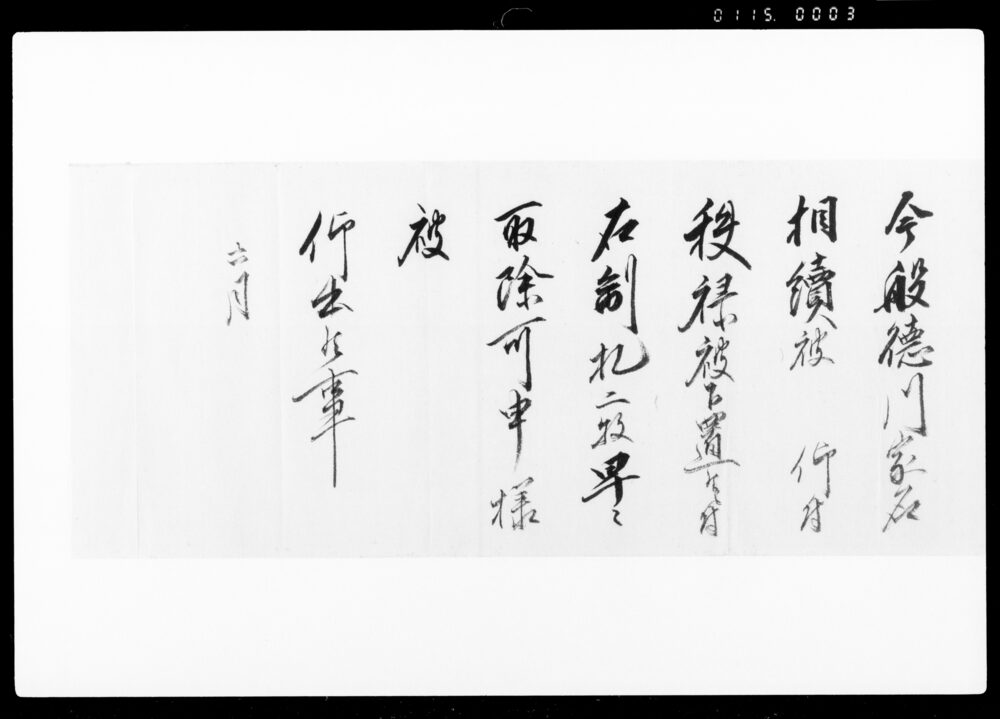 0115. 0003
今般徳川家名
相続被　仰付
秩禄被下置候付
右制札二枚早々
取除可申様
被
仰出候事
六月